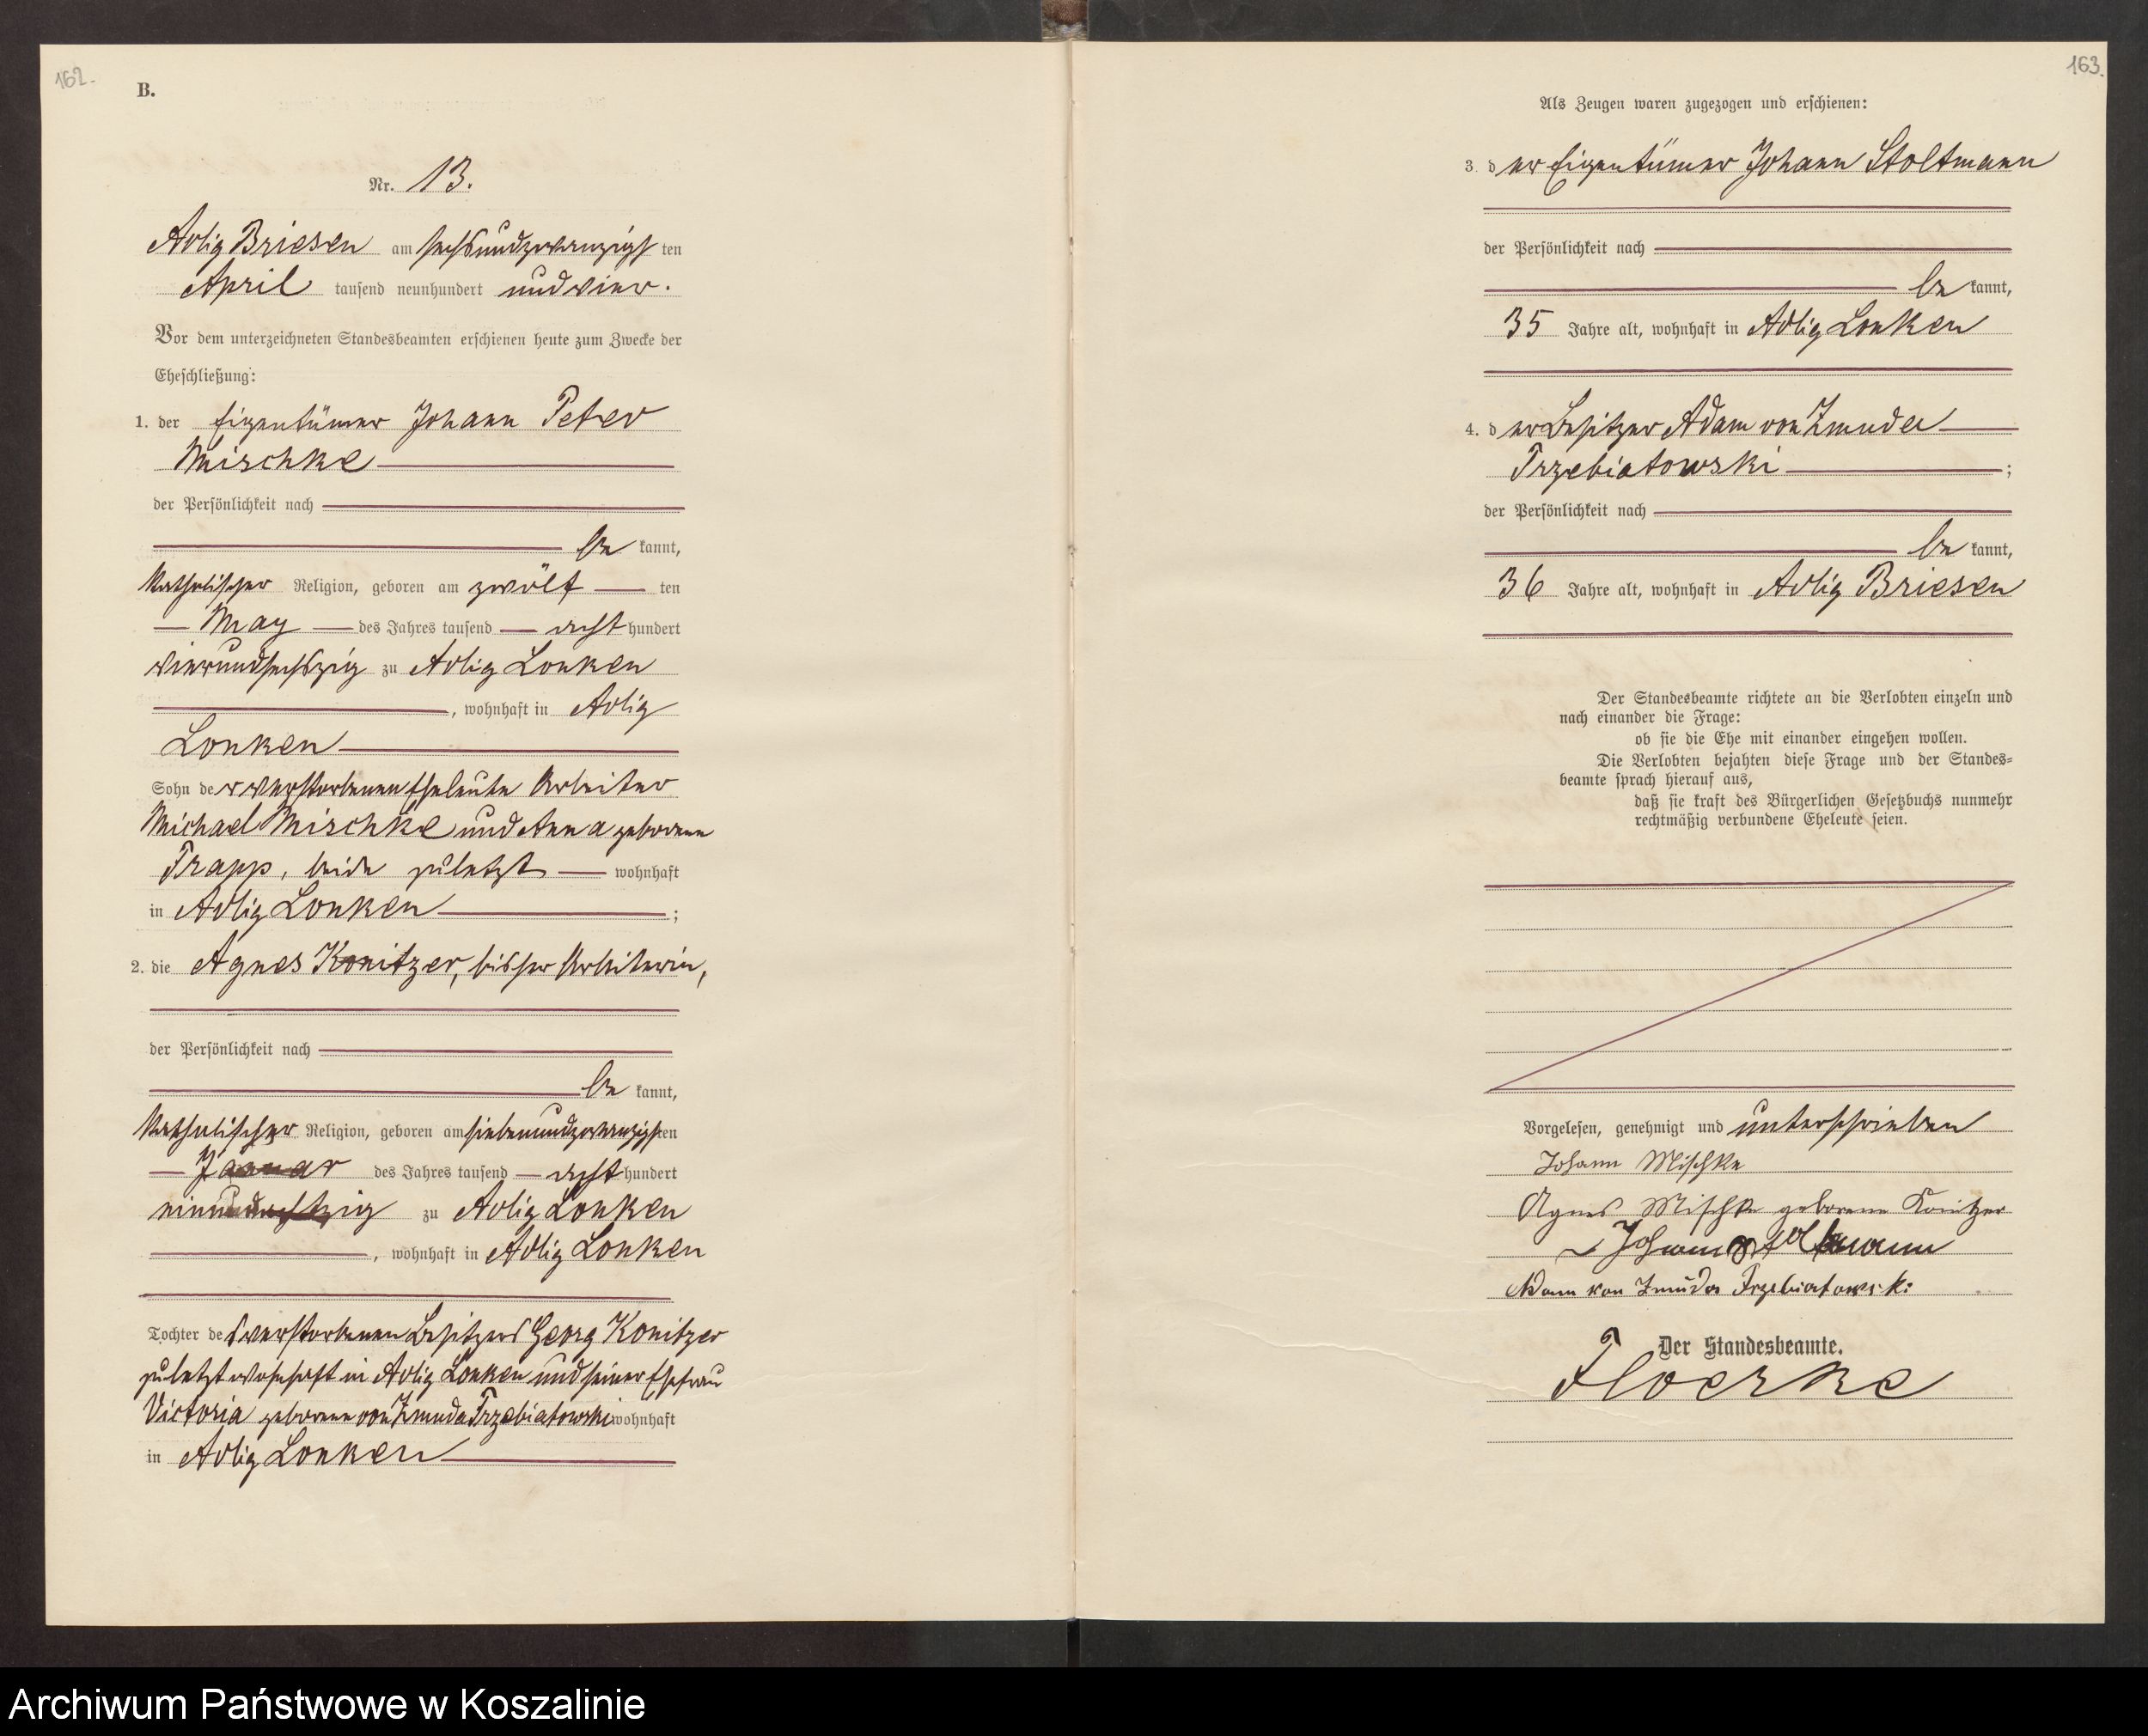 162.
B.
Nr. 13.
Adlig Briesen am sechsundzwanzigsten
April tausend neunhundert und vier.
Vor dem unterzeichneten Standesbeamten erschienen heute zum Zwecke der
Eheschließung:
1. der Eigentümer Johann Peter
Mischke
der Persönlichkeit nach
be kannt,
katholischer Religion, geboren am zwölf ten
May des Jahres tausend acht hundert
vierundsechszig zu Adlig Lonken
, wohnhaft in Adlig
Lonken
Sohn der verstorbenen Eheleute Arbeiter
Michael Mischke und Anna geborene
Trapp, beide zuletzt wohnhaft
in Adlig Lonken ;
2. die Agnes Konitzer, bisher Arbeiterin,
der Persönlichkeit nach
be kannt,
katholischer Religion, geboren am siebenundzwanzigsten
Januar des Jahres tausend acht hundert
einundachtzig zu Adlig Lonken
, wohnhaft in Adlig Lonken
Tochter des verstorbenen Besitzers Georg Konitzer
zuletzt wohnhaft in Adlig Lonken und seiner Ehefrau
Victoria geborene von Zmuda Trzebiatowski wohnhaft
in Adlig Lonken
163.
Als Zeugen waren zugezogen und erschienen:
3. der Eigentümer Johann Stoltmann
der Persönlichkeit nach
be kannt,
35 Jahre alt, wohnhaft in Adlig Lonken
4. der Besitzer Adam von Zmuda
Trzebiatowski ;
der Persönlichkeit nach
be kannt,
36 Jahre alt, wohnhaft in Adlig Briesen
Der Standesbeamte richtete an die Verlobten einzeln und
nach einander die Frage:
ob sie die Ehe mit einander eingehen wollen.
Die Verlobten bejahten diese Frage und der Standes-
beamte sprach hierauf aus,
daß sie kraft des Bürgerlichen Gesetzbuchs nunmehr
rechtmäßig verbundene Eheleute seien.
Vorgelesen, genehmigt und unterschrieben
Johann Mischke
Agnes Mischke geborene Konitzer
Johann Stoltmann
Adam von Zmuda Trzebiatowski
Der Standesbeamte.
Floerke
Archiwum Państwowe w Koszalinie